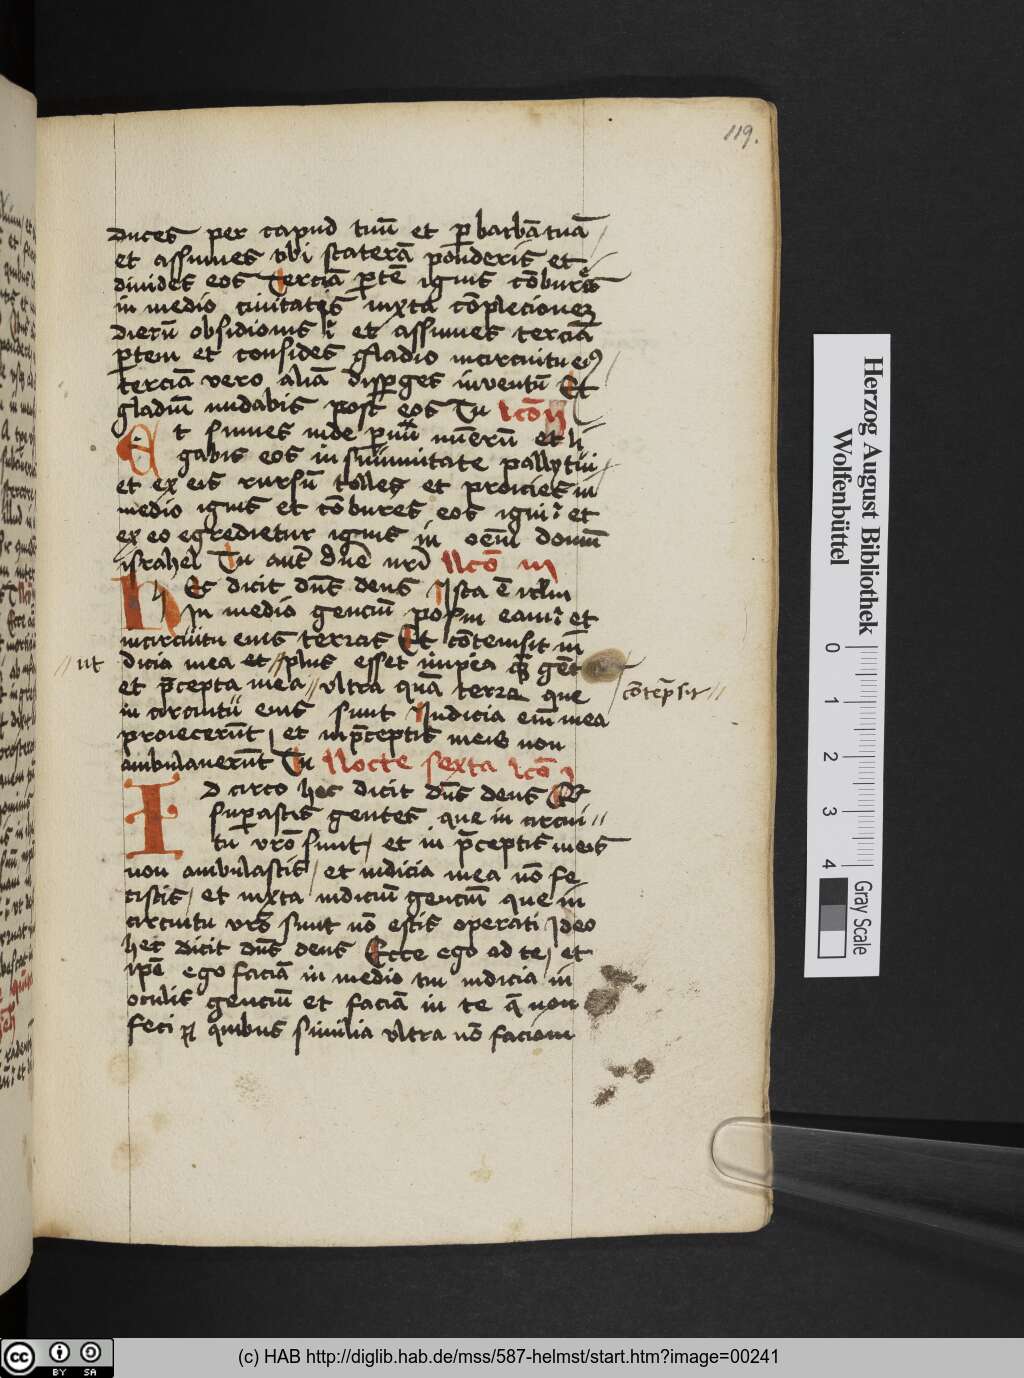 119.
duces per capud tuū et p barbā tuā
et assumes tibi staterā pōnderis et
diuides eos Terciā ptē ignis cōbures
in medio ciuitatis iuxta cōplecionez
dierū obsidionis et assumes terciā
ptem et consides gladio incircuitu eiꝰ
terciā vero aliā dispges inventū Et
gladiū nudabis post eos Tu lcō ij
Et sumes inde puū nūerū et li
gabis eos in sūmitate pallij tui
et ex eis rursū tolles et proicies in
medio ignis et cōbures eos igni et
ex eo egredietur ignis in oēm domū
israhel Tu aut dūe nrī llcō iij
Hec dicit dn̄s deus Ista ē irlm
In medio genciū posui eam et
incircuitu eius terras Et cōtemsit iu
//ut dicia mea et //plus esset impia q̄ gēt
et p̄cepta mea // vltra quā terra que cōtēpsit //
in circuitū eius sunt Iudicia em̄ mea
proiecerūt / et in p̄ceptis meis non
ambulauerūt Tu Nocte sexta lcō j
Idcirco hec dicit dn̄s deus Qr
supastis gentes que in circui //
tu vrō sunt / et in p̄ceptis meis
non ambulastis / et iudicia mea nō fe
cistis / et iuxta iudiciū genciū que in
circuitu vrō sunt nō estis operati Ideo
hec dicit dn̄s deus Ecce ego ad te / et
ipē ego faciā in medio tui iudicia in
oculis genciū et faciā in te q̄ non
feci et quibus similia vltra nō faciam
Herzog August Bibliothek
Wolfenbüttel
0 1 2 3 4
Gray Scale
cc BY SA
(c) HAB http://diglib.hab.de/mss/587-helmst/start.htm?image=00241